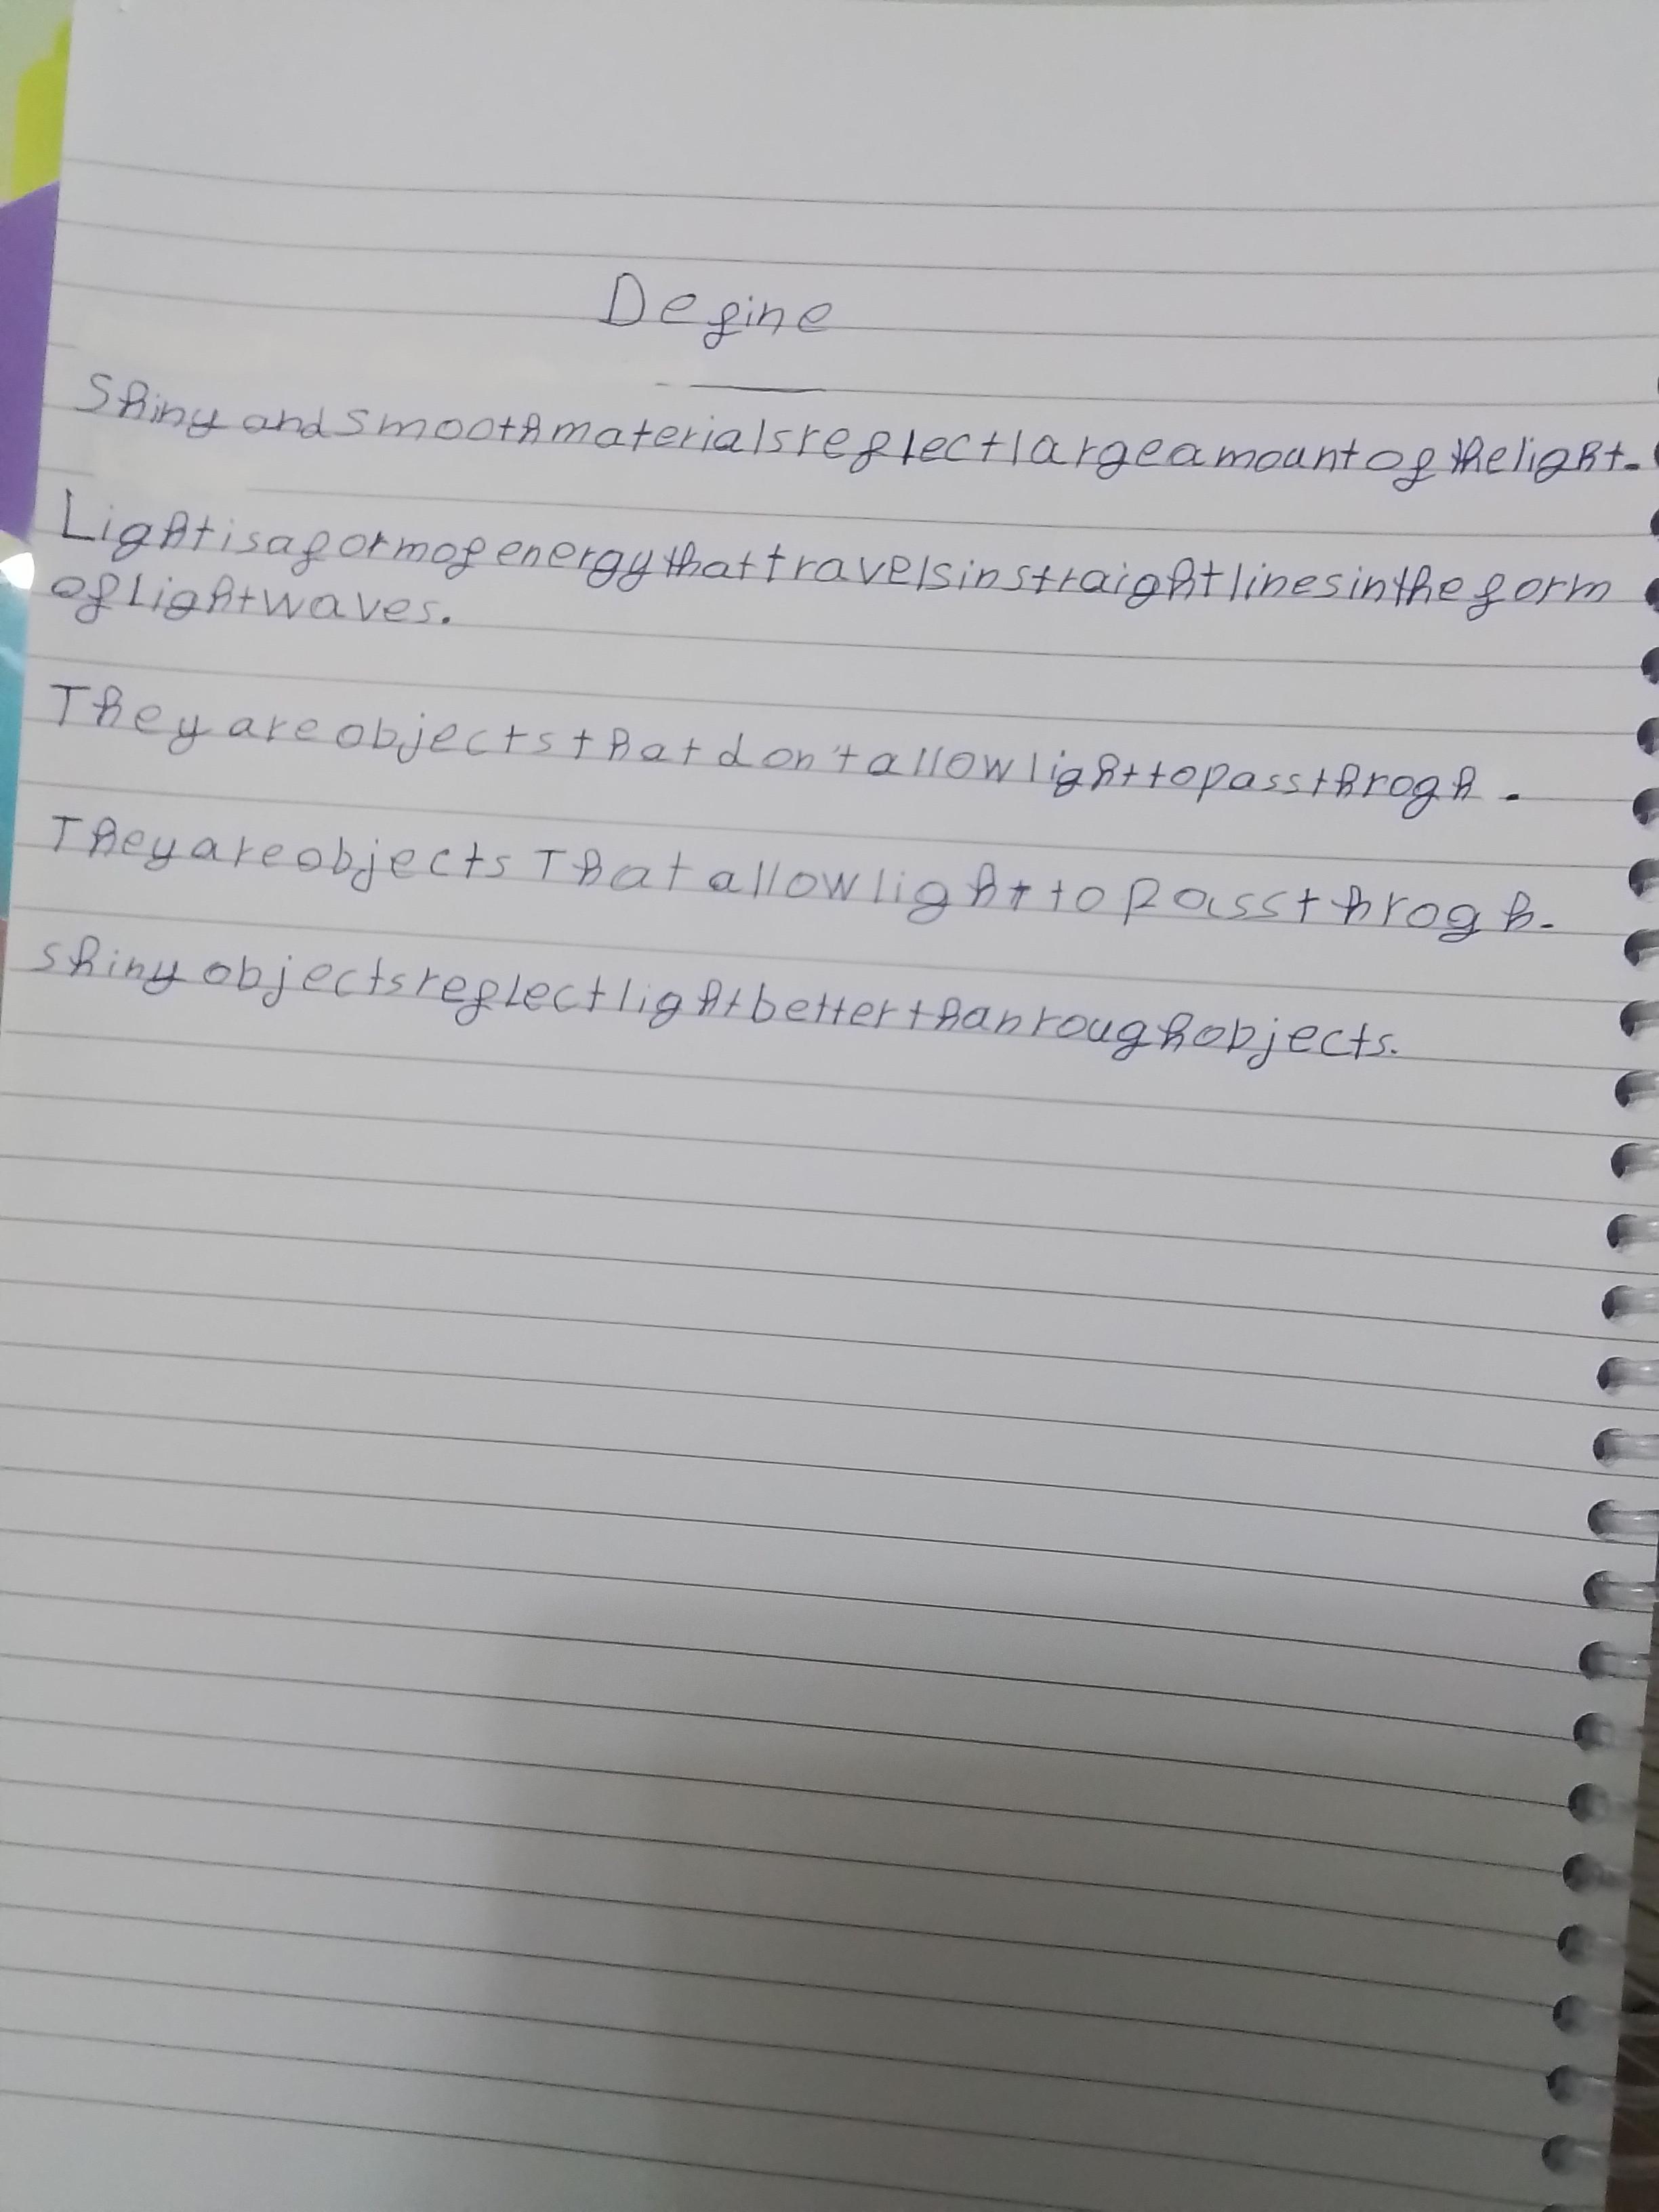 Define
Shiny and smooth materials reflect large amount of the light.
Light is a form of energy that travels in straight lines in the form
of Light waves.
They are objects that don't allow light to pass throgh.
They are objects That allow light to pass throgh.
shiny objects reflect light better than rough objects.